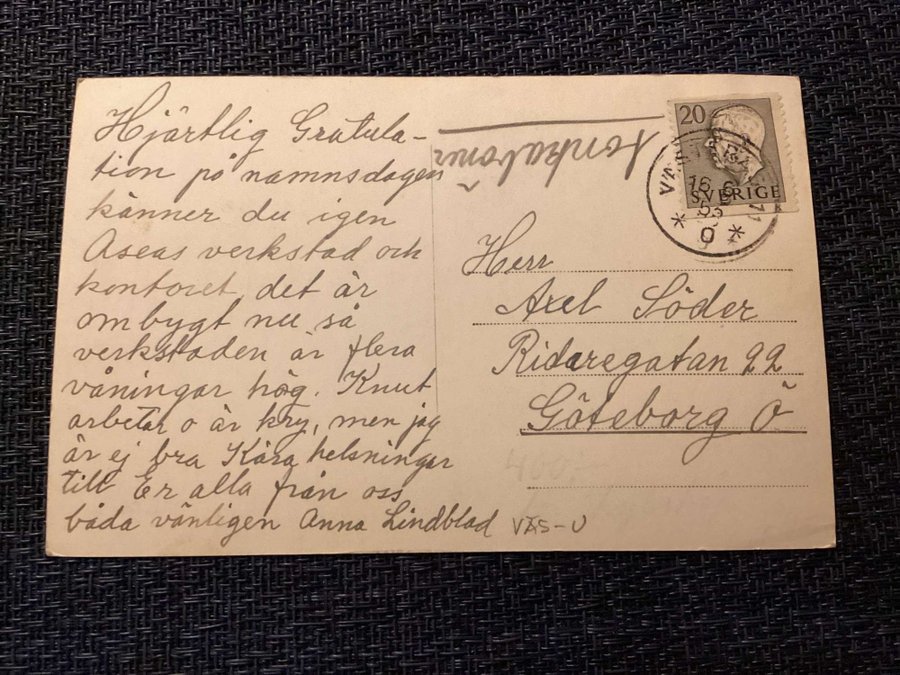 Hjärtlig Gratula-
tion på namnsdagen
känner du igen
Aseas verkstad och
kontoret det är
ombygt nu så
verkstaden är flera
våningar hög. Knut
arbetar o är kry, men jag
är ej bra Kära helsningar
till Er alla från oss
båda vänligen Anna Lindblad
VÄS-U
20
SVERIGE
16 6
53
* O *
Herr
Axel Söder
Ridaregatan 22
Göteborg Ö
400:-